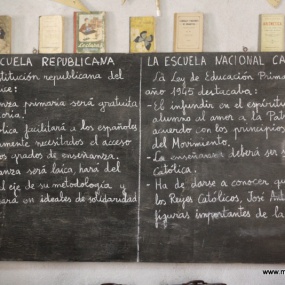 CUELA REPUBLICANA
stitución republicana del
ce:
anza primaria será gratuita
toria.
lica facilitará a los españoles
amente necesitados el acceso
os grados de enseñanza.
anza será laica, hará del
el eje de su metodología y
ará en ideales de solidaridad
LA ESCUELA NACIONAL CA
La Ley de Educación Prima
año 1945 destacaba:
- El infundir en el espíritu
alumno el amor a la Pat
acuerdo con los principios
del Movimiento.
- La enseñanza deberá ser
Católica.
- Ha de darse a conocer qu
los Reyes Católicos, José Ant
figuras importantes de la
www.m